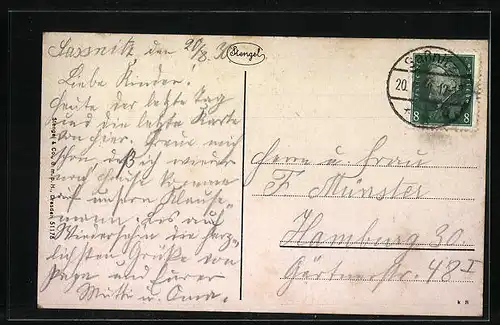 Sassnitz den 20/8. 30
Stengel
Liebe Kinder!
Heute der letzte Tag
und die letzte Karte
von hier. Freue mich
schon, daß ich wieder
nach Hause komme
auf unsern Klause-
mann. Also auf
Wiedersehn die herz-
lichsten Grüße von
Papa und Eurer
Mutti u. Oma.
Stengel & Co., G. m. b. H., Dresden 51178
Saßnitz
20.
8 8
Herrn u. Frau
F. Münster
Hamburg 30.
Gärtnerstr. 48 I